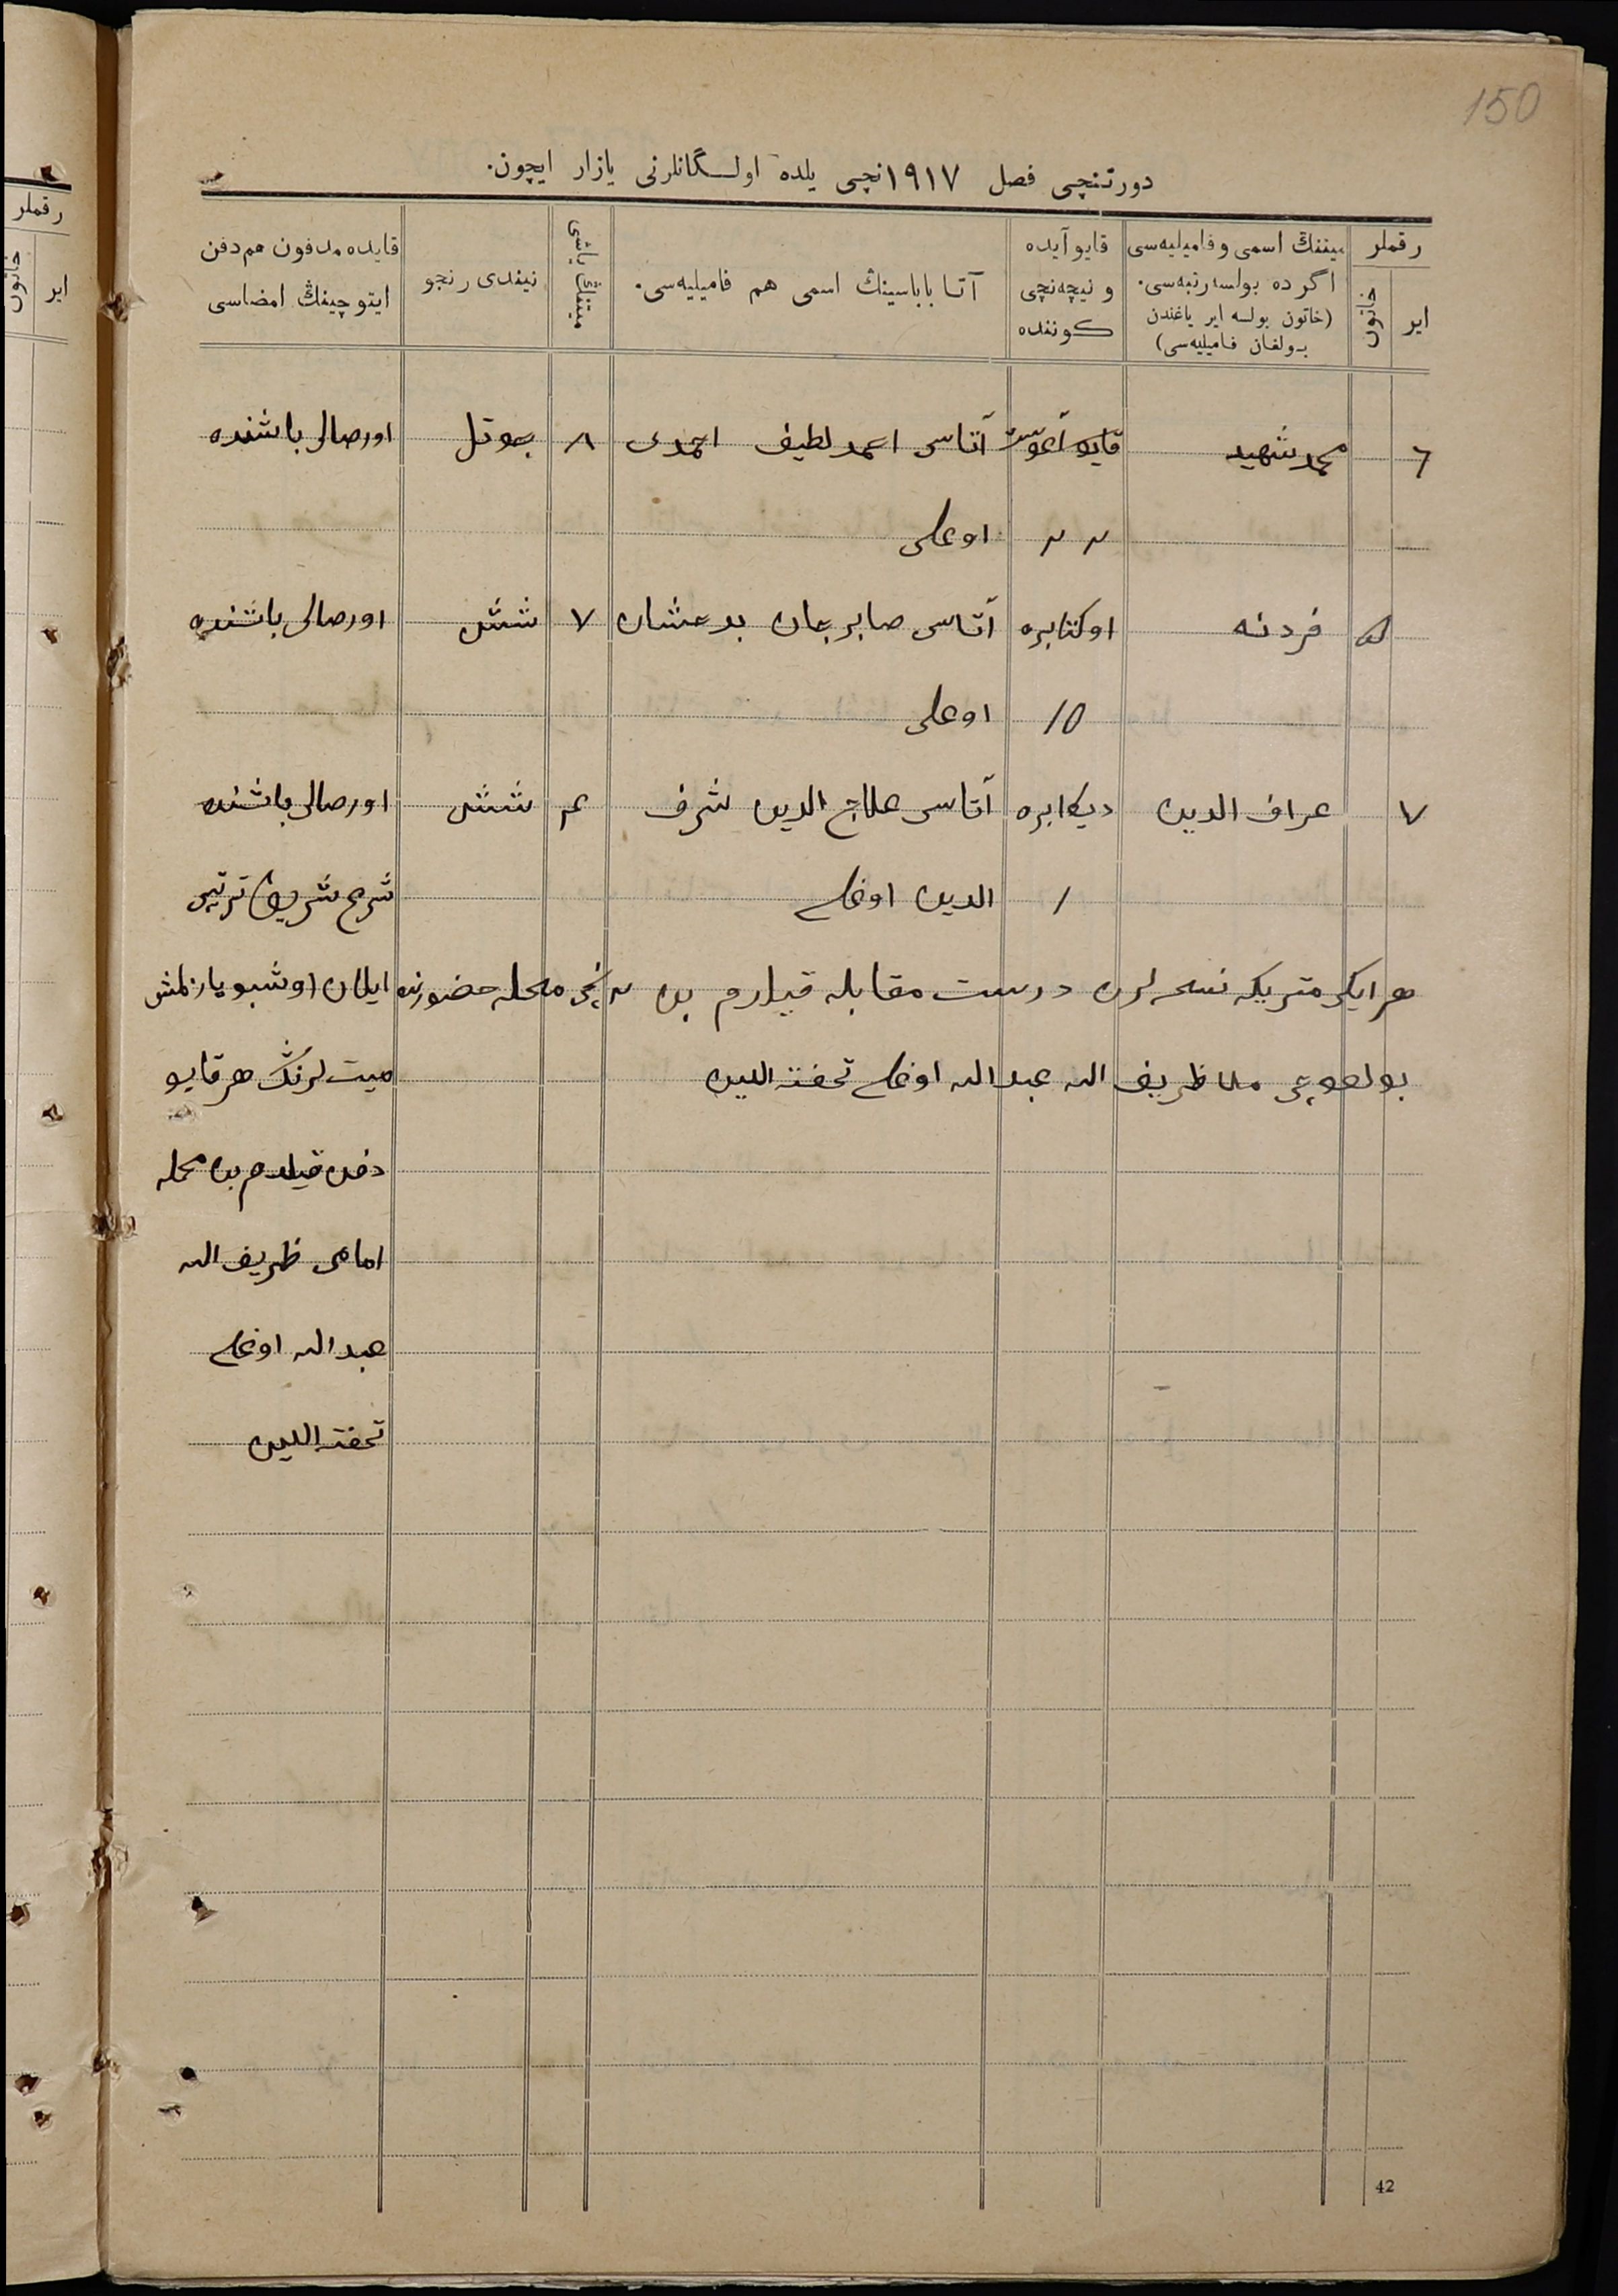 150
دورتنچی فصل ١٩١٧نچی یلده اولسگانلرنی یازار ایچون.
رقملر
ایر
خاتون
میتنڭ اسمی و فامیلیه‌سی
اگر ده بولسه رتبه‌سی.
(خاتون بولسه ایر یاغندن
بولغان فامیلیه‌سی)
قایو آیده
و نیچه‌نچی
کوننده
آتا باباسینڭ اسمی هم فامیلیه‌سی.
میتنڭ یاشی
نیندی رنجو
قایده مدفون هم دفن
ایتوچینڭ امضاسی
٦ محمد شهید آغوست آتاسی احمد لطیف احمدی ٨ یوتل اورصالی باشنده
اوغلی
٥ فردنه اوکتابره آتاسی صابر جان بدعشان ٧ شش اورصالی باشنده
10 اوغلی
٧ عراف الدین دیکابره آتاسی علاج الدین شرف ٤ شش اورصالی باشنده
1 الدین اوغلی شرع شریف ترتیبی
هر ایکی متریکه نسخه لرن درست مقابله قیلدم بن نچی محله حضورنده ایلان اوشبو یازلمش
بولغوچی ملا ظریف الله عبد الله اوغلی تحفة الدین میت لرنڭ هر قایو
دفن قیلدم بن محله
امامی ظریف الله
عبد الله اوغلی
تحفة الدین
42
رقملر
ایر
خاتون